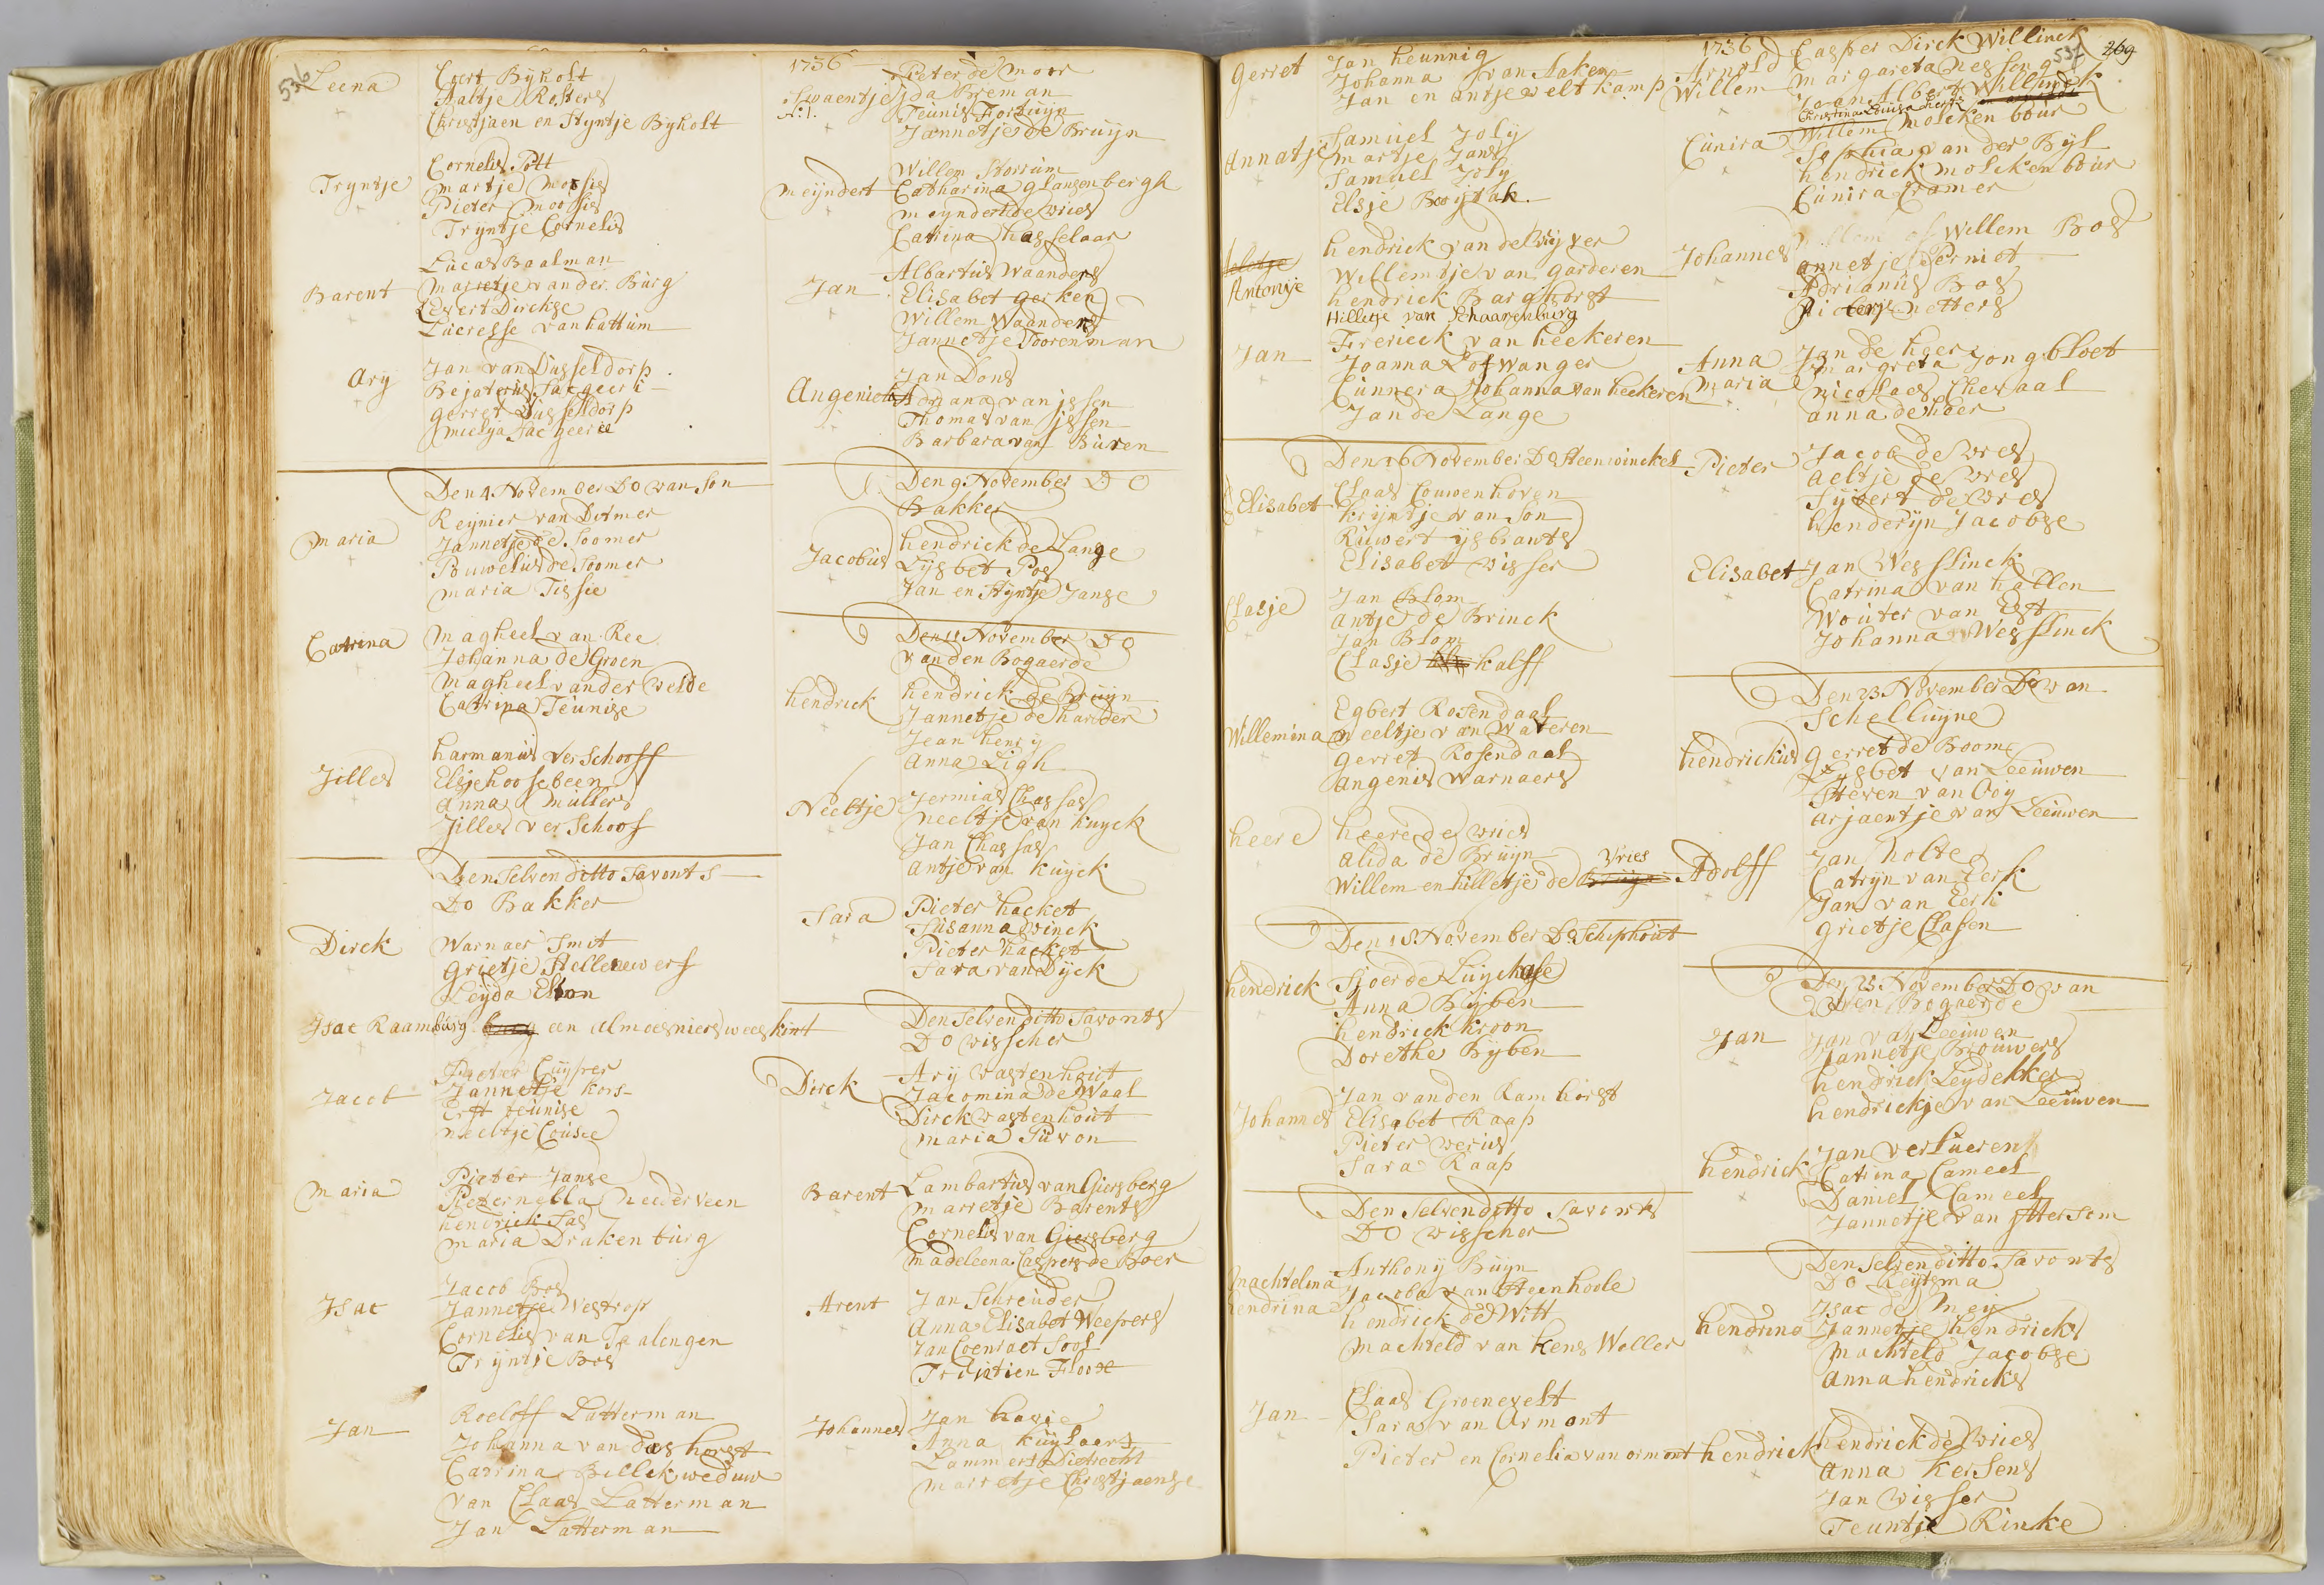 536
1736
Leena
Evert Byholt
Aaltje Rosters
Christjaen en Styntje Byholt
Tryntje
Cornelis Pott
Martje Moosies
Pieter Moosies
Tryntje Cornelis
Barent
Lucas Baalman
Marretje van der Burg
Evert Dirckse
Lucresse van hattum
Ary
Jan van Dusseldorp
gerret Dusseldorp
Den 4 November Do van Son
Maria
Reynier van Ditmer
Jannetje de Soomer
Pouwelus de Soomer
Maria Tissie
Catrina
Magheel van Ree
Johanna de Groen
Magheel vander velde
Catrina Teunise
Jilles
harmanus verschooff
Elsje hoosebeen
Anna Mullers
Jilles verschoof
Den Selven ditto Savonts
Do Bakker
Dirck
Warnaer Smit
Grietje Stellenwerf
Leyda Elton
Isac Raamburg een almoesniers weeskint
Jacob
Pieter Cuyper
Jannetje kors
Neeltje Cousee
Maria
Pieter Janse
Pieternella Neederveen
hendrick Sas
Maria Drakenburg
Isac
Jacob Bos
Jannetje Westrop
Cornelis van Taalengen
Tryntje Bos
Jan
Roeloff Latterman
Johanna van dashorst
Catrina Billek weduw
van Claas Latterman
Jan Latterman
Swaentje
Pieter de Moor
Ida Breman
Teunis Fortuyn
Jannetje de Bruyn
Meyndert
Willem Storrum
Catharina glansenbergh
Meyndert de vries
Catrina hasselaar
Jan
Albartus Waanders
Elisabet gerken
Willem Waanders
Jannetje Toorenman
Angenietie
Jan Dons
Adriana van issen
Thomas van issen
Barbara van Buren
Den 9 November Do
Bakker
Jacobus
hendrick de Lange
Lysbet Pos
Jan en Styntje Janse
Den 11 November Do
van den Bogaerde
hendrick
hendrick de Bruyn
Jannetje de harder
Jean henry
Anna Ligh
Neeltje
Jermias Chassas
Neeltje van kuyck
Jan Chassas
Antje van kuyck
Sara
Pieter hacket
Susanna winck
Pieter hacket
Sara van Dyck
Den Selven ditto Savonts
Do visscher
Dirck
Ary vastenhout
Jacomina de Waal
Dirck vastenhout
Maria Suvon
Barent
Lambartus van Giersberg
Marretje Barents
Cornelis van Giersberg
Madeleena Caspers de Boer
Arent
Jan Schreuder
Anna Elisabet Weepers
Jan Coenraet Sool
Johannes
Jan havie
Anna kuylaars
Lammert Dietrecht
Marretje Christjaense
gerret
Jan heunnig
Johanna van Aaken
Jan en Antje velt kamp
Annatje
Samuel Joly
Martje Jans
Samuel Joly
Elsje Booytak
Aeltje
Antonije
hendrick van de Vyver
Willemtje van garderen
hendrick Barghorst
Hilletje van Schaarenburg
Jan
Frerieck van heekeren
Joanna Lofwanger
Cunnera Johanna van heekeren
Jan de Lange
Den 16 November Do Steenwinckel
Elisabet
Claas Couwenhoven
kryntje van Son
Ruwert ysbrants
Elisabet visser
Clasje
Jan Blom
Antje de Brinck
Jan Blom
Clasje kalff
Willemina
Egbert Rosendaal
Neeltje van Wateren
gerret Rosendaal
Angenis Warnaers
heere
heere de vries
Alida de Bruyn
Willem en hilletje de Bruyn Vries
Den 18 November Do Schiphout
hendrick
Sjoerde Luyckase
Anna Byben
hendrick kroon
Dorethe Byben
Johannes
Jan vanden Ramhorst
Elisabet Raap
Pieter verius
Sara Raap
Den Selven ditto Savonts
Do visscher
Machtelina
hendrina
Anthony Buyn
Jacoba van Steenhoole
hendrick de Witt
Machteld van kens Weller
Jan
Claas Groenevelt
Sara van Ormont
Pieter en Cornelia van ormont
1736
537
269
Arnold
Willem
Casper Dirck Willinck
Margareta Nessen
Cunira
Willem Molckenbour
Sophia van der Byl
hendrick Molckenbour
Cunira Cramer
Johannes
Willem Bos
Annetje Perniot
Adrianus Bos
Pieterje Netters
Anna
Maria
Jan de heer
Margreta Jongbloet
Nicolaes Chevaal
Anna de heer
Pieter
Jacob de Vres
Aeltje de Vres
Sybert de Vres
henderyn Jacobse
Elisabet
Jan Wesslinck
Catrina van hallen
Wouter van Est
Johanna Wesslinck
Den 23 November Do van
Schelluyne
hendrickus
gerret de Boom
Lysbet van Leeuwen
Steven van Ooy
Arjaentje van Leeuwen
Adolff
Jan holte
Catryn van Eerk
Jan van Eerk
grietje Clasen
Den 25 November Do van
den Bogaerde
Jan
Jan van Leeuwen
Jannetje Brouwers
hendrick Leydekker
hendrickje van Leeuwen
hendrick
Jan verlueren
Catrina Cameel
Daniel Cameel
Jannetje van Ittersem
Den Selven ditto Savonts
Do Reytsma
hendrina
Isac de Mey
Jannetje hendricks
Machteld Jacobse
Anna hendricks
hendrick
hendrick de Vries
Anna kersens
Jan visser
Teuntje Rinke